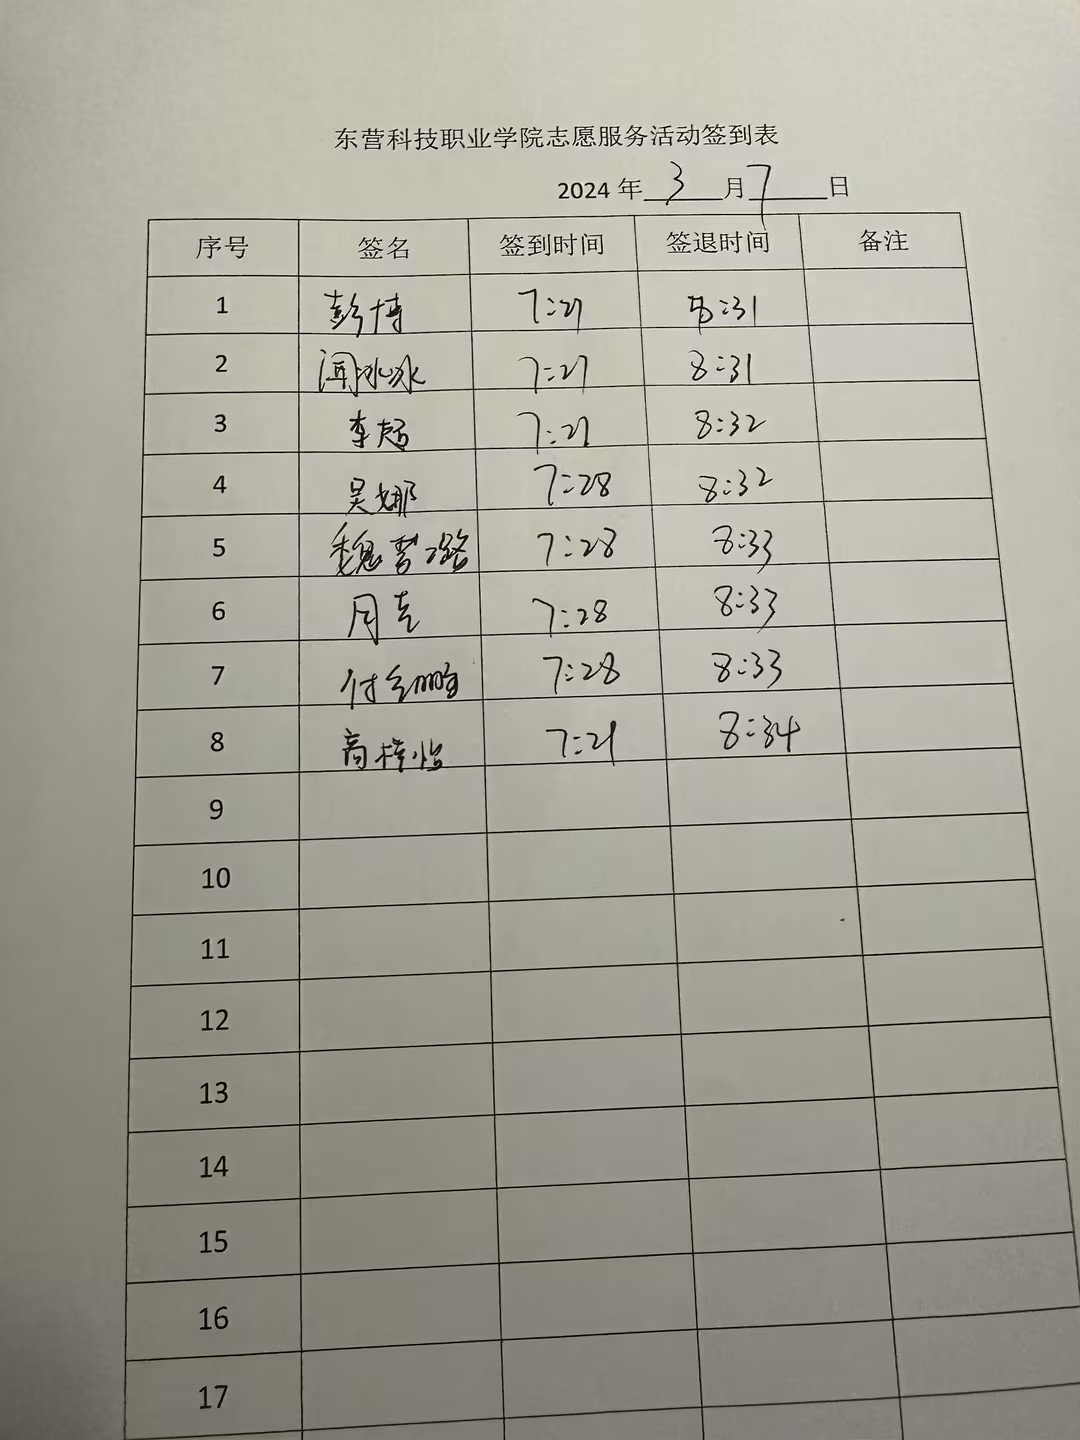 东营科技职业学院志愿服务活动签到表
2024 年 3 月 7 日
序号 签名 签到时间 签退时间 备注
1 彭博 7:21 8:31
2 闻冰冰 7:27 8:31
3 李超 7:21 8:32
4 吴娜 7:28 8:32
5 魏梦璐 7:28 8:33
6 周克 7:28 8:33
7 7:28 8:33
8 高梓怡 7:21 8:34
9
10
11
12
13
14
15
16
17